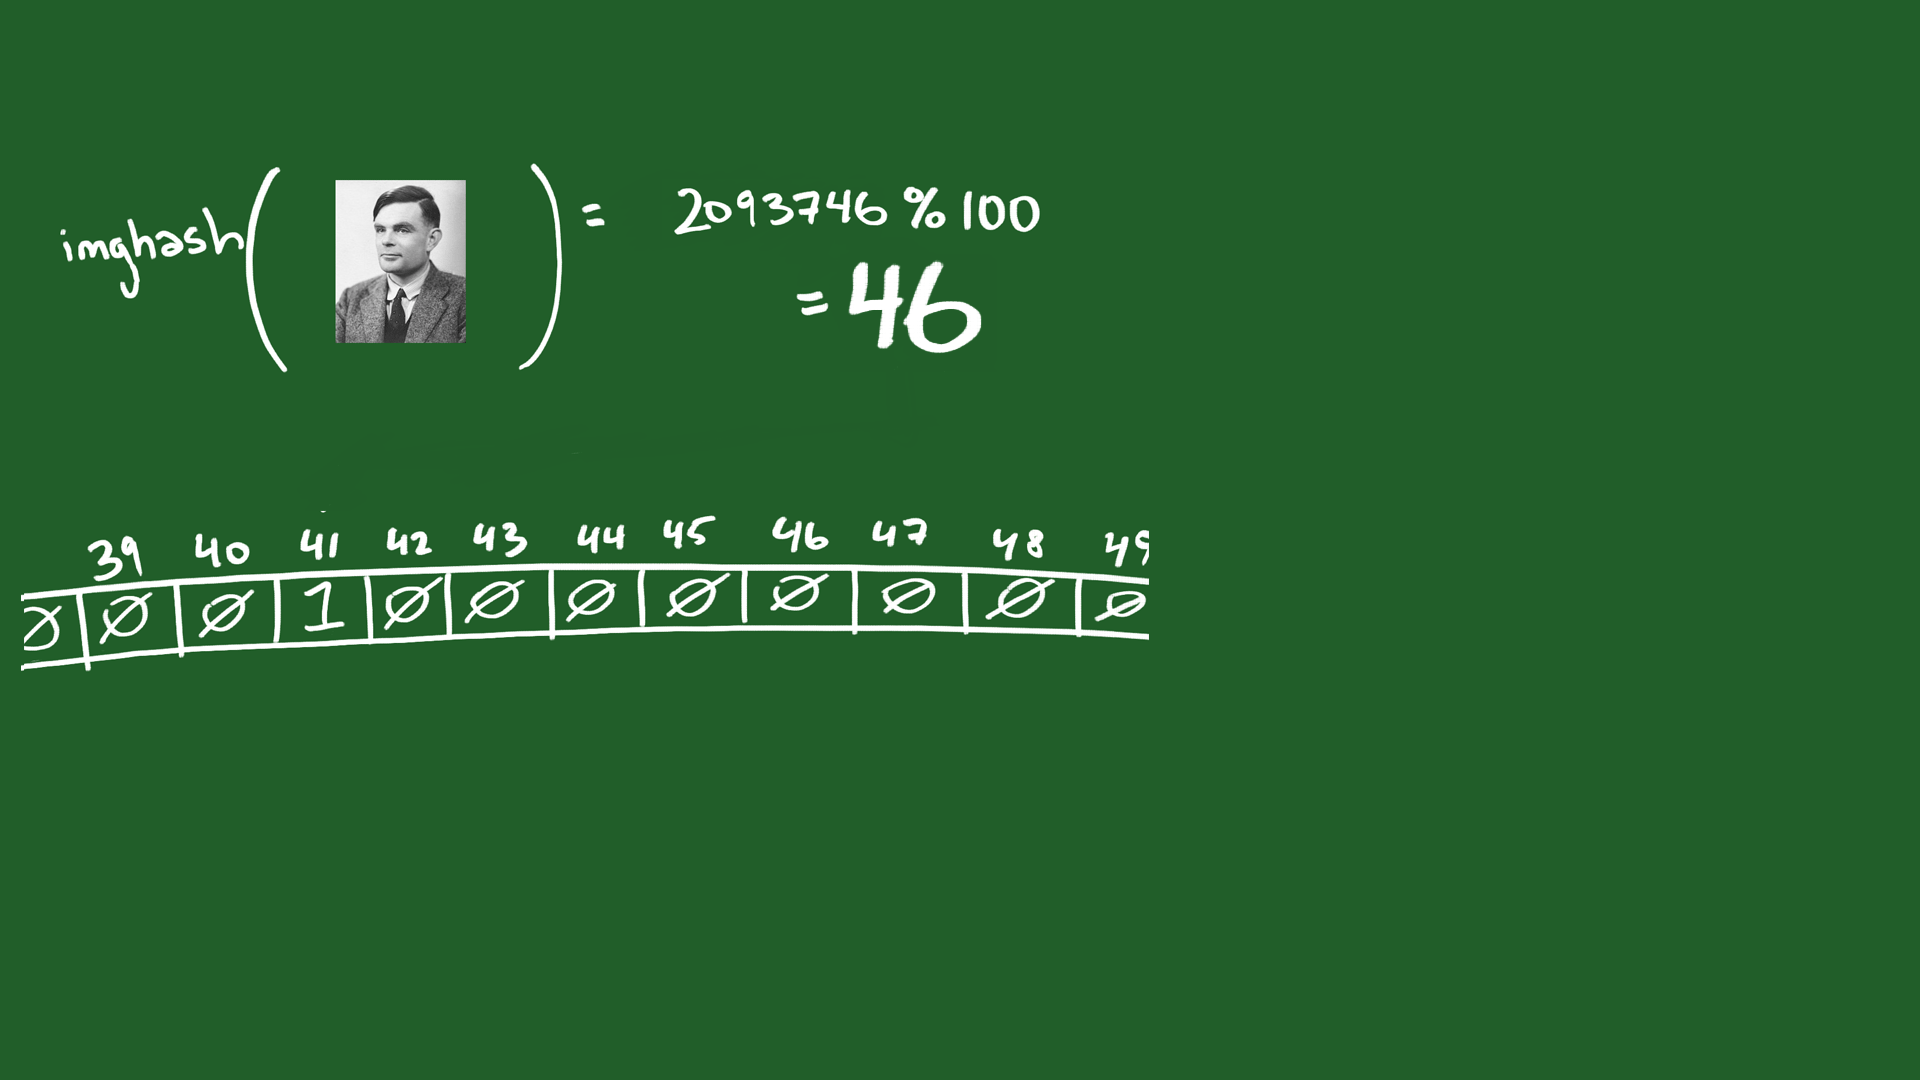 imghash( ) = 2093746 % 100
= 46
39 40 41 42 43 44 45 46 47 48 49
Ø Ø Ø 1 Ø Ø Ø Ø Ø Ø Ø Ø